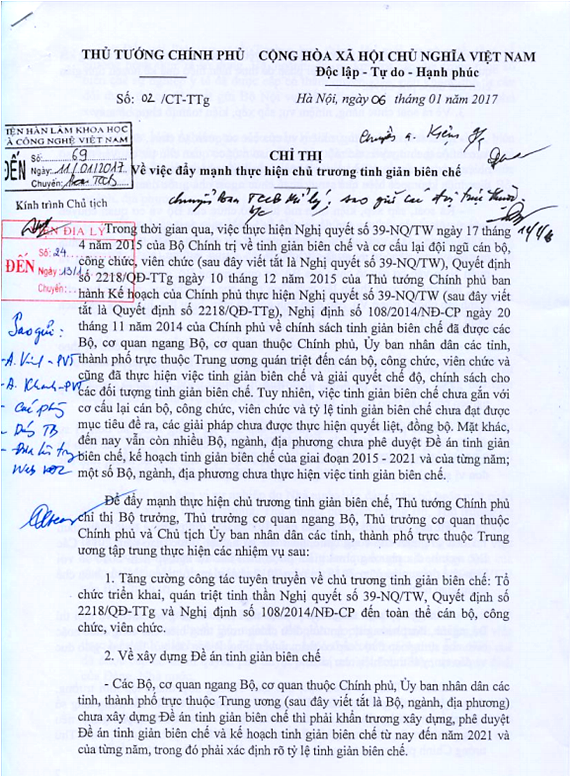 THỦ TƯỚNG CHÍNH PHỦ CỘNG HÒA XÃ HỘI CHỦ NGHĨA VIỆT NAM
Độc lập - Tự do - Hạnh phúc
Số: 02 /CT-TTg
Hà Nội, ngày 06 tháng 01 năm 2017
VIỆN HÀN LÂM KHOA HỌC
VÀ CÔNG NGHỆ VIỆT NAM
ĐẾN
Số: 69
Ngày: 11/01/2017
Chuyển: Ban TCCB
Kính trình Chủ tịch
CHỈ THỊ
Về việc đẩy mạnh thực hiện chủ trương tinh giản biên chế
VIỆN ĐỊA LÝ
ĐẾN
Số: 24
Ngày: 13/1
Chuyển:
Trong thời gian qua, việc thực hiện Nghị quyết số 39-NQ/TW ngày 17 tháng
4 năm 2015 của Bộ Chính trị về tinh giản biên chế và cơ cấu lại đội ngũ cán bộ,
công chức, viên chức (sau đây viết tắt là Nghị quyết số 39-NQ/TW), Quyết định
số 2218/QĐ-TTg ngày 10 tháng 12 năm 2015 của Thủ tướng Chính phủ ban
hành Kế hoạch của Chính phủ thực hiện Nghị quyết số 39-NQ/TW (sau đây viết
tắt là Quyết định số 2218/QĐ-TTg), Nghị định số 108/2014/NĐ-CP ngày 20
tháng 11 năm 2014 của Chính phủ về chính sách tinh giản biên chế đã được các
Bộ, cơ quan ngang Bộ, cơ quan thuộc Chính phủ, Ủy ban nhân dân các tỉnh,
thành phố trực thuộc Trung ương quán triệt đến cán bộ, công chức, viên chức và
cũng đã thực hiện việc tinh giản biên chế và giải quyết chế độ, chính sách cho
các đối tượng tinh giản biên chế. Tuy nhiên, việc tinh giản biên chế chưa gắn với
cơ cấu lại cán bộ, công chức, viên chức và tỷ lệ tinh giản biên chế chưa đạt được
mục tiêu đề ra, các giải pháp chưa được thực hiện quyết liệt, đồng bộ. Mặt khác,
đến nay vẫn còn nhiều Bộ, ngành, địa phương chưa phê duyệt Đề án tinh giản
biên chế, kế hoạch tinh giản biên chế của giai đoạn 2015 - 2021 và của từng năm;
một số Bộ, ngành, địa phương chưa thực hiện việc tinh giản biên chế.
Sao gửi:
Để đẩy mạnh thực hiện chủ trương tinh giản biên chế, Thủ tướng Chính phủ
chỉ thị Bộ trưởng, Thủ trưởng cơ quan ngang Bộ, Thủ trưởng cơ quan thuộc
Chính phủ và Chủ tịch Ủy ban nhân dân các tỉnh, thành phố trực thuộc Trung
ương tập trung thực hiện các nhiệm vụ sau:
1. Tăng cường công tác tuyên truyền về chủ trương tinh giản biên chế: Tổ
chức triển khai, quán triệt tinh thần Nghị quyết số 39-NQ/TW, Quyết định số
2218/QĐ-TTg và Nghị định số 108/2014/NĐ-CP đến toàn thể cán bộ, công
chức, viên chức.
2. Về xây dựng Đề án tinh giản biên chế
- Các Bộ, cơ quan ngang Bộ, cơ quan thuộc Chính phủ, Ủy ban nhân dân các
tỉnh, thành phố trực thuộc Trung ương (sau đây viết tắt là Bộ, ngành, địa phương)
chưa xây dựng Đề án tinh giản biên chế thì phải khẩn trương xây dựng, phê duyệt
Đề án tinh giản biên chế và kế hoạch tinh giản biên chế từ nay đến năm 2021 và
của từng năm, trong đó phải xác định rõ tỷ lệ tinh giản biên chế.